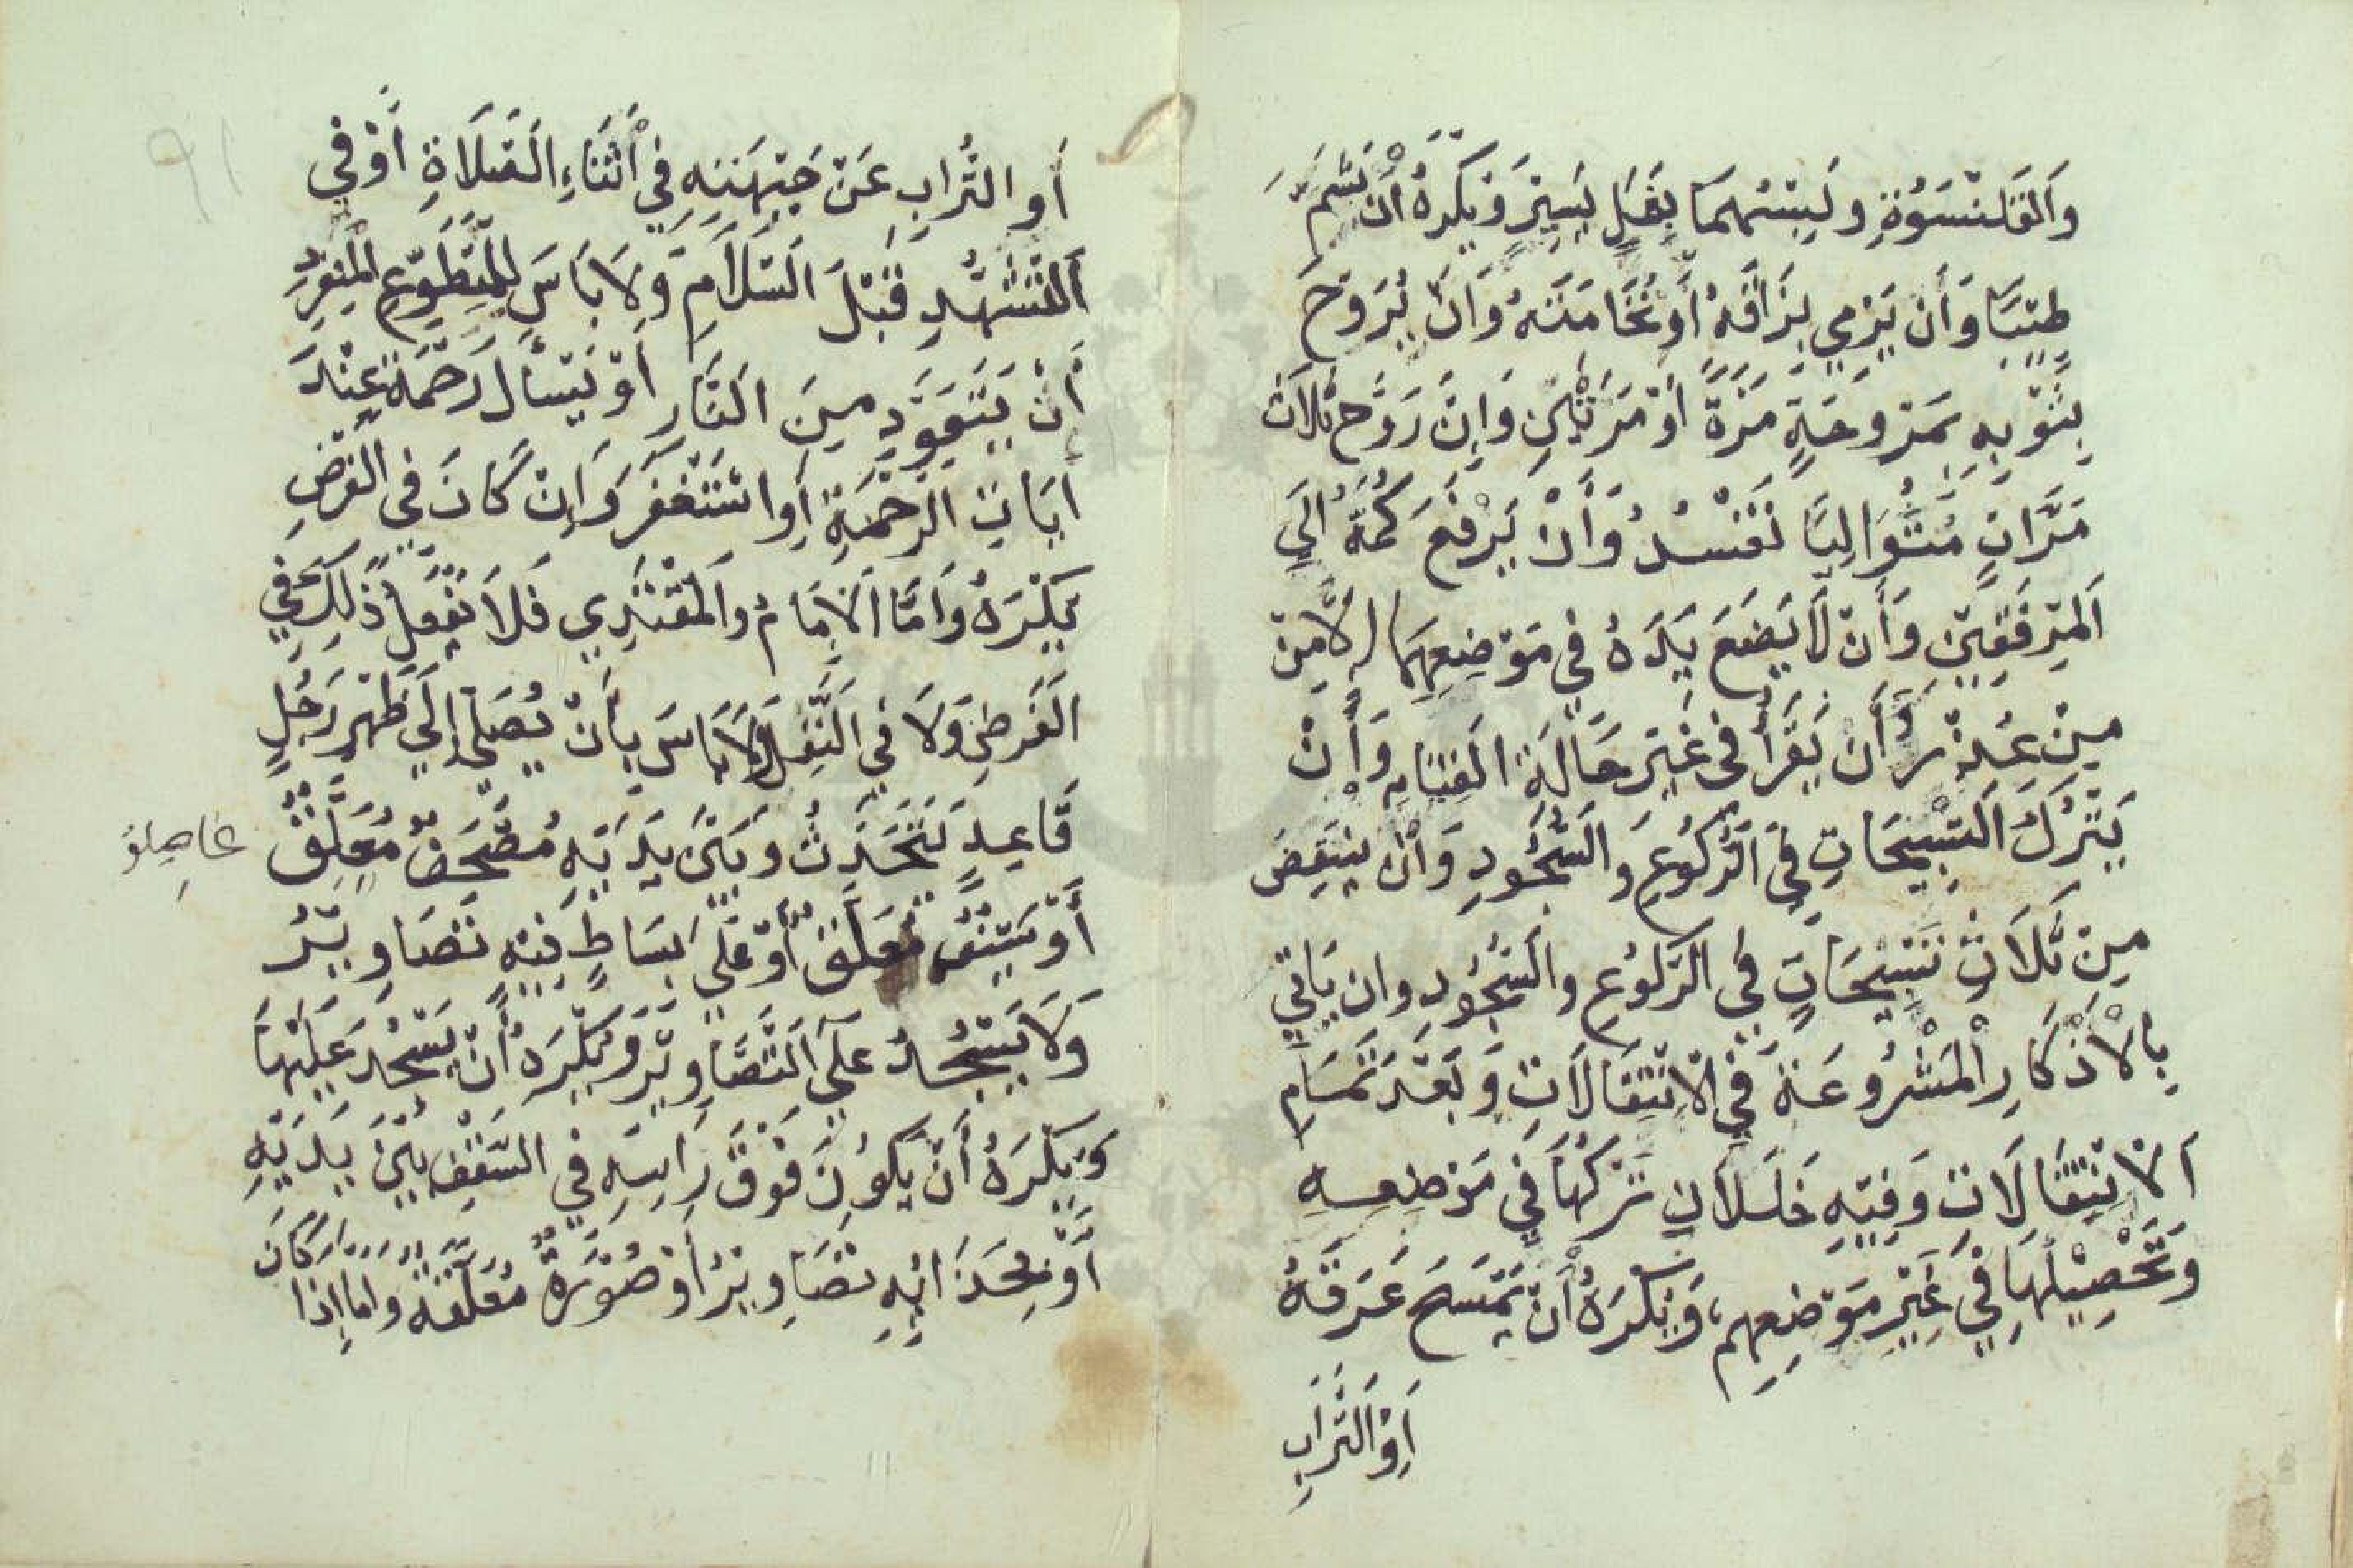 وَالقَلَنْسَوَةِ وَلُبْسُهُمَا بِعَمَلٍ يَسِيرٍ وَيُكْرَهُ أَنْ يَشُمَّ
طِيبًا وَأَنْ يَرْمِي بُزَاقَهُ أَوْ نُخَامَتَهُ وَأَنْ يُرَوِّحَ
بِثَوْبِهِ بِمَرْوَحَةٍ مَرَّةً أَوْ مَرَّتَيْنِ وَإِنْ رَوَّحَ ثَلَاثَ
مَرَّاتٍ مُتَوَالِيًا تَفْسُدُ وَأَنْ يَرْفَعَ كُمَّهُ إِلَي
المِرْفَقَيْنِ وَأَنْ لَا يَضَعَ يَدَهُ فِي مَوْضِعِهِمَا إِلَّا مِنْ
مِنْ عُذْرٍ أَنْ يَقْرَأَ فِي غَيْرِ حَالَةِ القِيَامِ وَأَنْ
يَتْرُكَ التَسْبِيحَاتِ فِي الرُّكُوعِ وَالسُّجُودِ وَأَنْ يَنْقُصَ
مِنْ ثَلَاثِ تَسْبِيحَاتٍ فِي الرُّكُوعِ وَالسُّجُودِ وَان يَاتِي
بِالْاَذْكَارِ الْمَشْرُوعَةِ فِي الْاِنْتِقَالَاتِ وَبَعْدَ تَمَامِ
الاِنْتِقَالَاتِ وَفِيهِ خَلَلَانِ تَرْكُهَا فِي مَوْضِعِهِ
وَتَحْصِيلُهَا فِي غَيْرِ مَوْضِعِهِم، وَيُكْرَهُ أَنْ يَمْسَحَ عَرَقَهُ
أَوِ التُّرَابِ
أَوِ التُّرَابِ عَنْ جَبْهَتِهِ فِي أَثْنَاءِ الصَّلَاةِ أَوْ فِي
التَّشَهُّدِ قَبْلَ السَّلَامِ وَلَا بَاسَ لِلْمُتَطَوِّعِ المُنْفَرِدِ
أَنْ يَتَعَوَّدَ مِنَ النَّارِ أَوْ يَسْأَلَ رَحْمَةً عِنْدَ
آيَاتِ الرَّحْمَةِ أَوِ اسْتَغْفَرَ وَإِنْ كَانَ فِي الفَرْضِ
يُكْرَهُ وَأَمَّا الاِمَامُ وَالمُقْتَدِي فَلَا يَفْعَلُ ذَلِكَ فِي
الفَرْضِ وَلَا فِي النَّفْلِ وَلَا بَاسَ بِأَنْ يُصَلِّي إِلَي ظَهْرِ رَجُلٍ
قَاعِدٍ يَتَحَدَّثُ وَبَيْنَ يَدَيْهِ مُصْحَفٌ مُعَلَّقٌ
أَوْ سَيْفٌ مُعَلَّقٌ أَوْ عَلَي بِسَاطٍ فِيهِ تَصَاوِيرُ
وَلَا يَسْجُدُ عَلَي التَّصَاوِيرِ وَيُكْرَهُ أَنْ يَسْجُدَ عَلَيْهَا
وَيُكْرَهُ أَنْ يَكُونَ فَوْقَ رَاسِهِ فِي السَّقْفِ بَيْنَ يَدَيْهِ
أَوْ بِحَذَائِهِ تَصَاوِيرُ أَوْ صُورَةٌ مُعَلَّقَةٌ وَامَّا اِذَا كَانَ
٩١